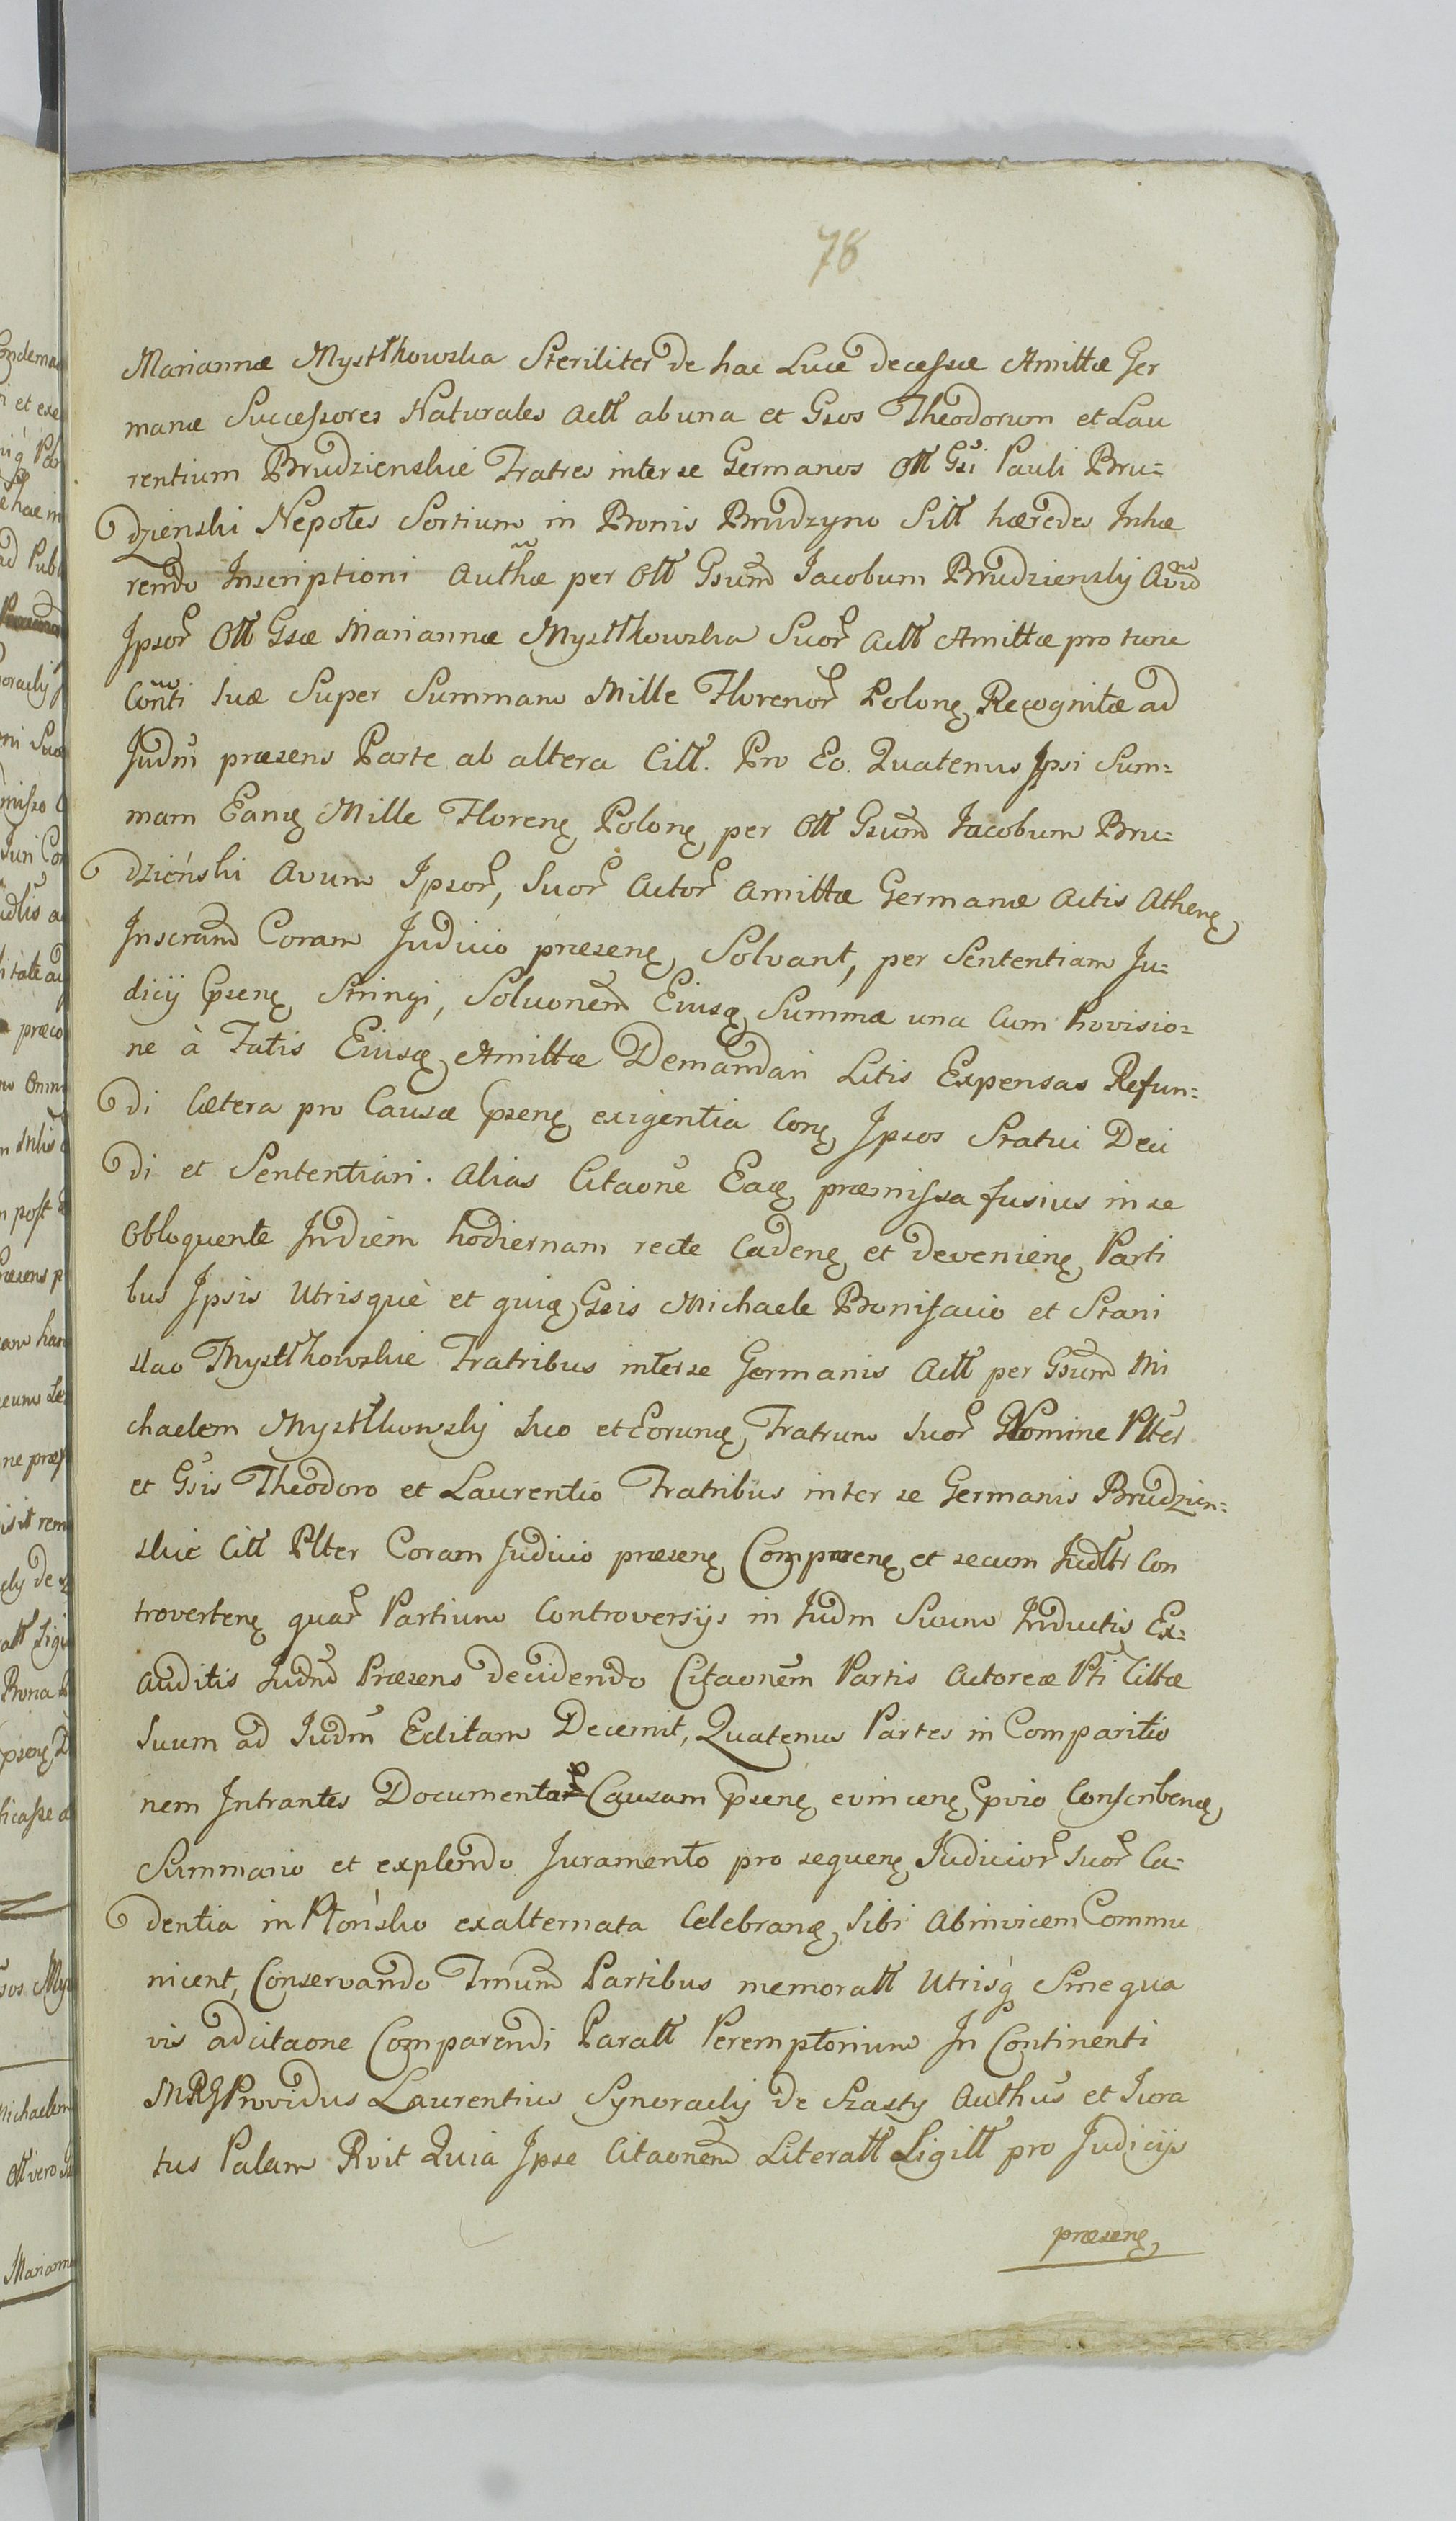 78
Mariannæ Mystkowska Steriliter de hac Luce decessæ Amittæ Ger
manæ Successores Naturales Actt abuna et Gsos Theodorum et Lau
rentium Brudzienskie Fratres inter se Germanos Ott Gsi Pauli Bru=
dzienski Nepotes Sortium in Bonis Brudzyno Sitt hæredes Inhæ
rendo Inscriptioni Authæ per Ott Gsum Jacobum Brudziensky Avũ
Ipsor Ott Gsæ Mariannæ Mystkowska Suor Actt Amittæ pro tunc
Conti suæ Super Summam Mille Florenor Polonq Recognitæ ad
Judm præsens Parte ab altera Citt. Pro Eo. Quatenus Ipsi Sum=
mam Eamq Mille Florenq Polonq per Ott Gsum Jacobum Bru=
dzieński Avum Ipsor, Suor Actor Amittæ Germanæ Actis Athenq
Inscram Coram Judicio præsenq Solvant, per Sententiam Ju=
dicij Psenq Stringi, Soluonem Eiusq Summæ una Cum Provisio=
ne à Fatis Eiusq Amittæ Demandari Litis Expensas Refun=
di Cætera pro Causæ Psenq exigentia Conq Ipsos Statui Deci
di et Sententiari. Alias Citaone Eaq præmissa fusius in se
Obloquente Indiem hodiernam recte Cadenq et devenienq Parti
bus Ipsis Utrisquè et quiq Gsis Michaele Bonifacio et Stani
slao Mystkowskie Fratribus inter se Germanis Actt per Gsum Mi
chaelem Mystkowsky suo et Eorumq Fratrum suor Nomine Plter
et Gsis Theodoro et Laurentio Fratribus inter se Germanis Brudzien=
skie Citt Plter Coram Judicio præsenq Comparenq et secum Judltr Con
trovertenq quar Partium Controversijs in Judm Suum Inductis Ex=
auditis Judm Præsens decidendo Citaonem Partis Actoreæ Pti Cittæ
suum ad Judm Editam Decernit, Quatenus Partes in Comparitio
nem Intrantes Documenta Causam Psenq evincenq pvio Conscribenq
Summario et explendo Juramento pro sequenq Judicior suor Ca=
dentia in Płońsko exalternata Celebranq sibi abinvicem Commu
nicent, Conservando Tmum Partibus memoratt Utrisq Sine qua
vis adcitaone Comparendi Paratt Peremptorium In Continenti
MRG Providus Laurentius Synoracky de Szasty Authus et Jura
tus Palam Rvit Quia Ipse Citaonem Literatt Sigitt pro Judicijs
præsenq